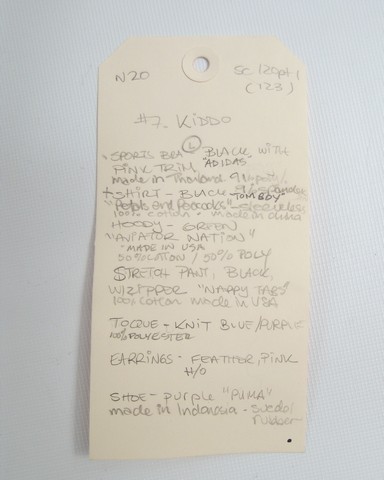 N20 SC 120pt1
(123)
#7. KIDDO
SPORTS BRA - BLACK WITH
PINK TRIM "ADIDAS"
made in Thailand 91%
T-SHIRT - BLACK TOMBOY"
"Petals and Peacocks"
100% cotton - made in china
HOODY - GREEN
"AVIATOR NATION"
"MADE IN USA
50% COTTON / 50% POLY
STRETCH PANT, BLACK,
W/ZIPPER "NAPPY TABS"
100% cotton made in USA
TOQUE - KNIT BLUE/PURPLE
100% POLYESTER
EARRINGS - FEATHER, PINK
H/O
SHOE - purple "PUMA"
made in Indonesia - suede/
rubber